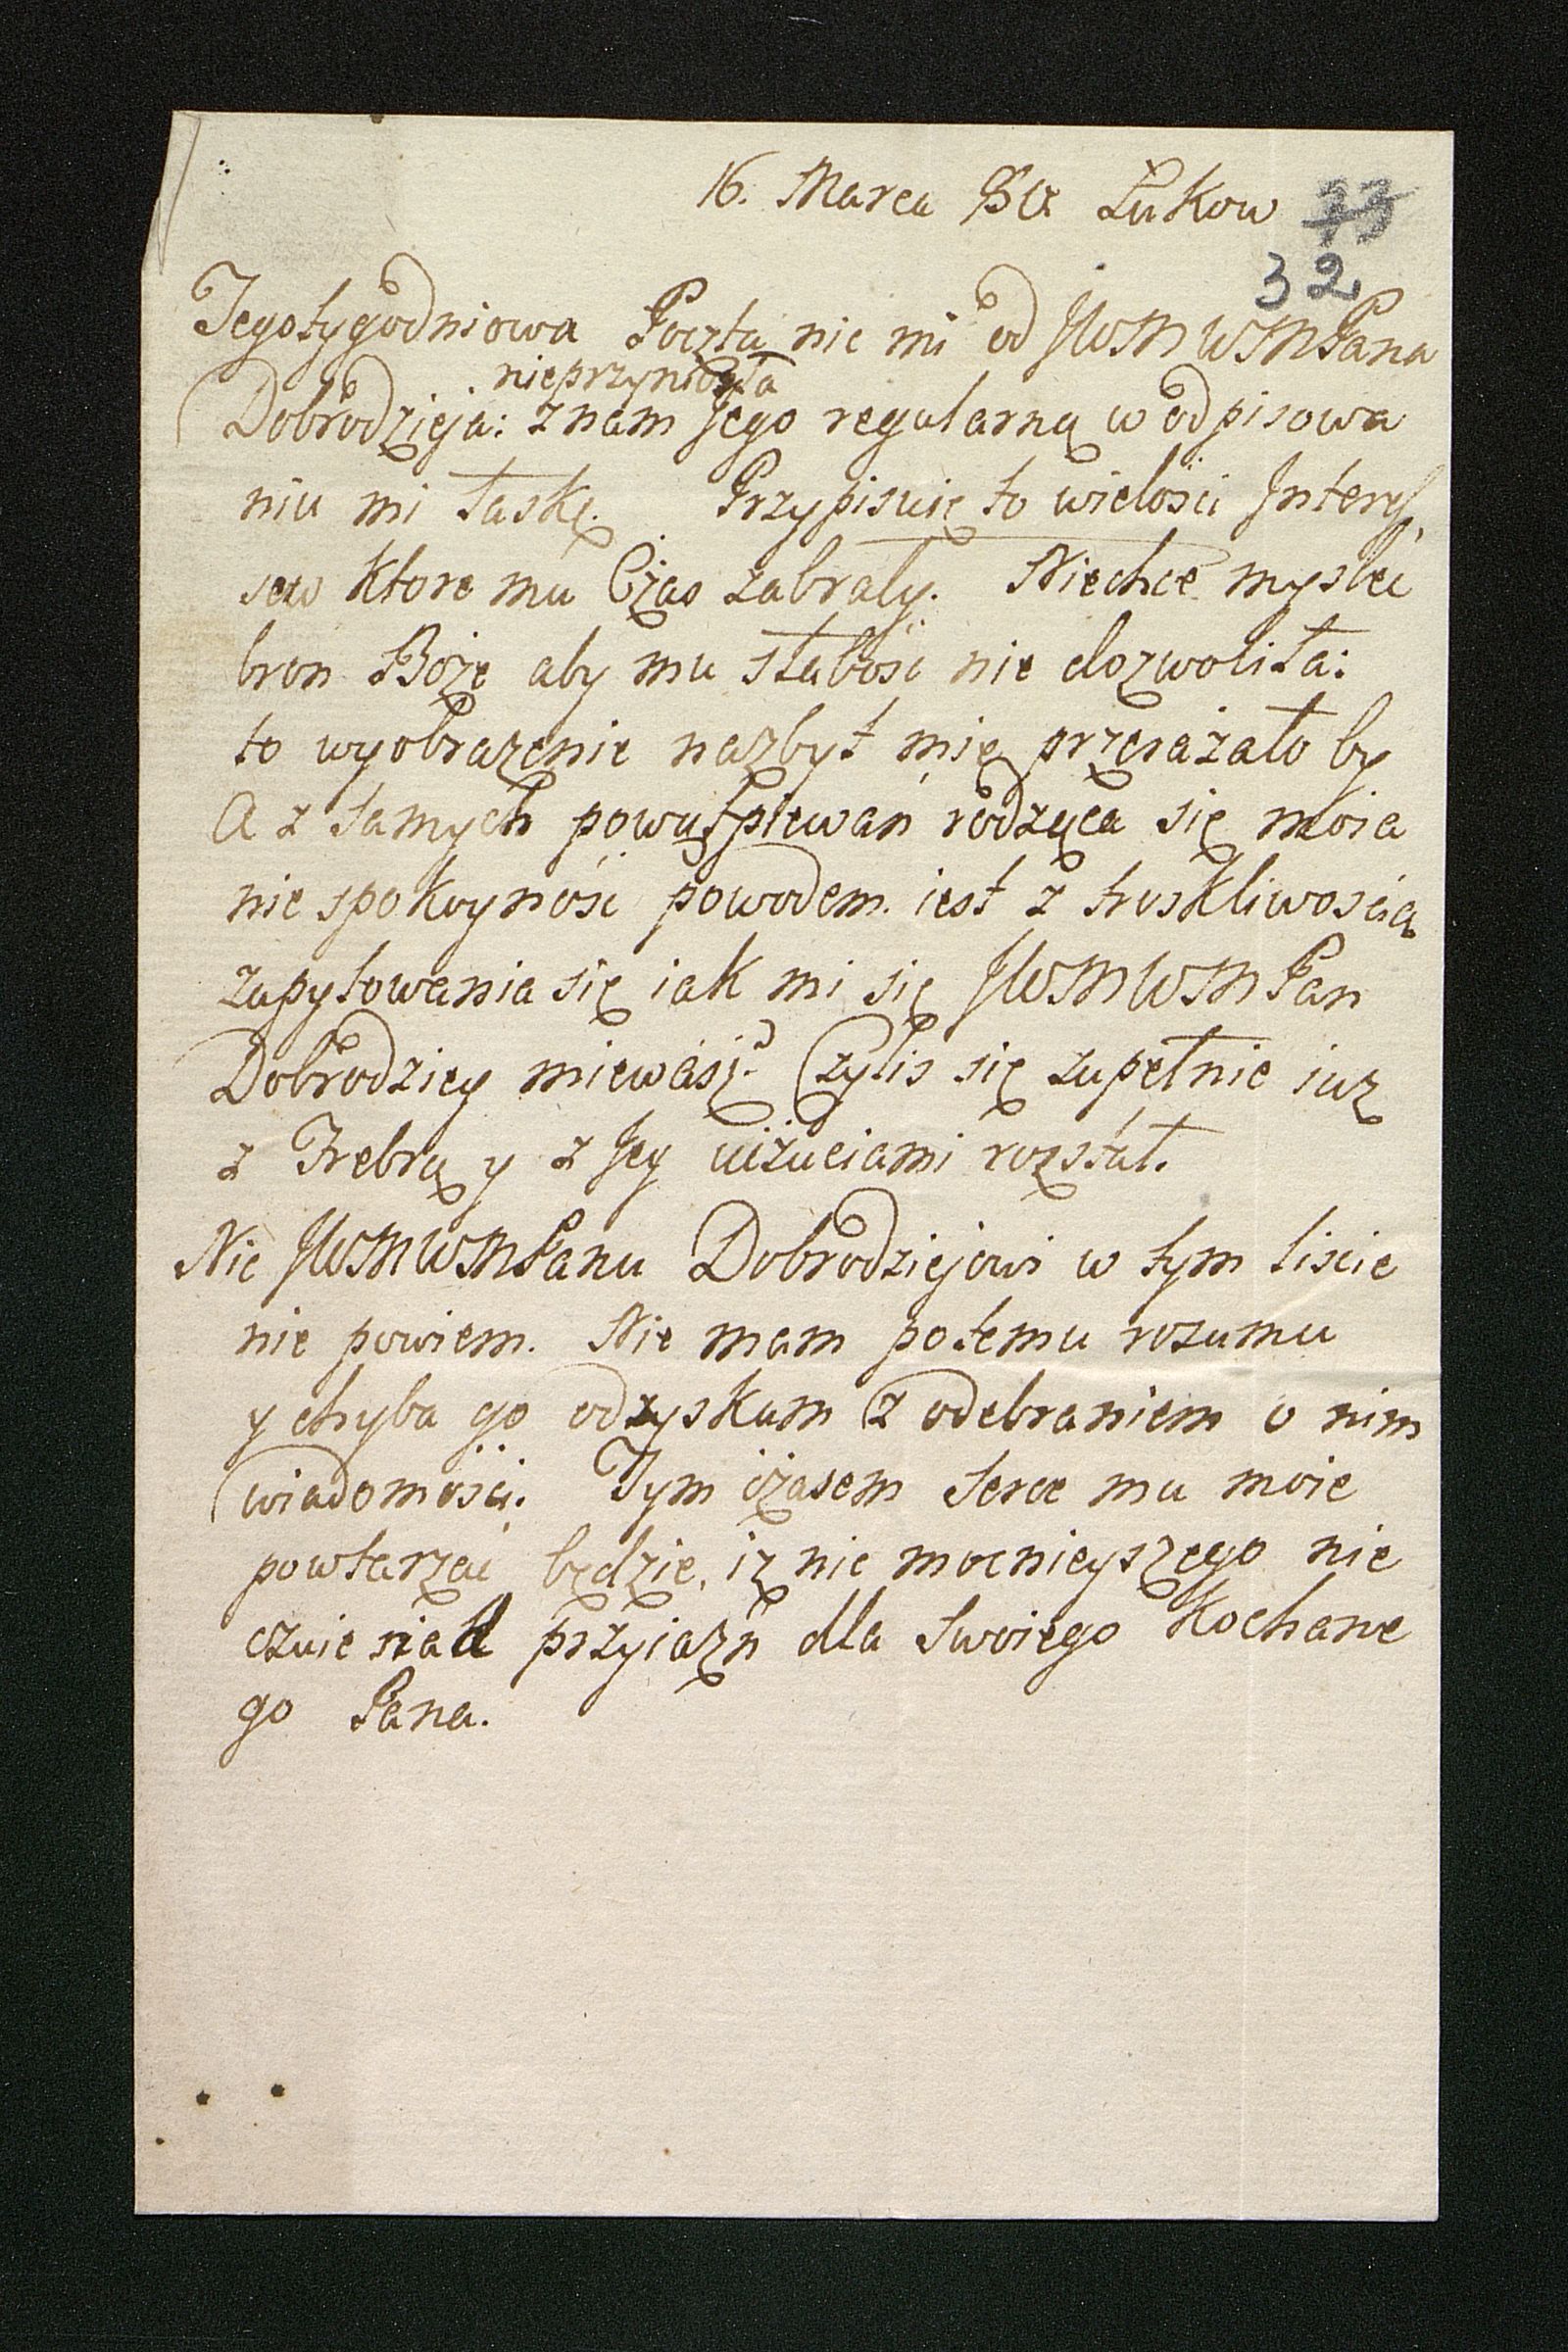 16. Marca Łukow 33
32
Tegotygodniowa Poczta nic mi od JWMWMPana
nieprzyniosła
Dobrodzieja: znam Jego regularną w odpisowa
niu mi łaskę. Przypisuię to wielosci Interes
sew ktore mu Czas zabrały. Niechcę myslec
bron Boże aby mu słabosc nie dozwoliła:
to wyobrazenie nazbyt mię przerażało by
A z samych powątpiewań rodząca się moia
niespokoynosc powodem iest z troskliwoscią
zapytowania się iak mi się JWMWMPan
Dobrodziey miewasz? Czylis się zupełnie iuz
z Febrą y z Jey uczuciami rozstał.
Nic JWMWMPanu Dobrodziejowi w tym liscie
nie powiem. Nie mam potemu rozumu
y chyba go odzyskam z odebraniem o nim
wiadomosci. Tym czasem serce mu moie
powtarzac będzie, iz nic mocnieyszego nie
czuie nad przyiazn dla swoiego Kochane
go Pana.